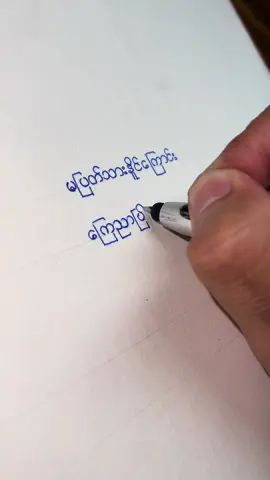 မပြတ်သားနိုင်ကြောင်း
ကြေညာပြီ